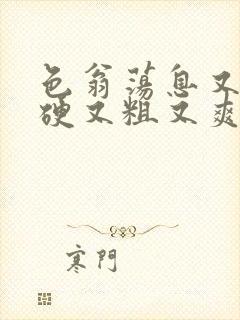 色翁荡息又大又
硬又粗又爽
寒門